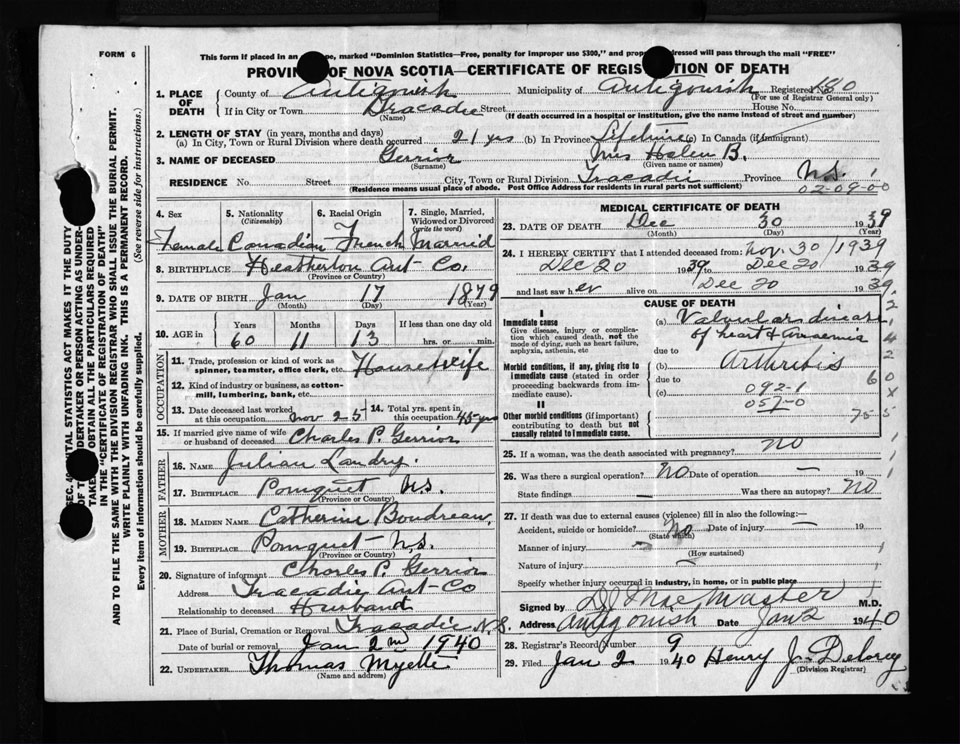 FORM 6
This form if placed in an , marked "Dominion Statistics—Free, penalty for improper use $300," and addressed will pass through the mail "FREE"
PROVINCE OF NOVA SCOTIA—CERTIFICATE OF REGISTRATION OF DEATH
1. PLACE OF DEATH County of Antigonish Municipality of Antigonish Registered No. 130
(For use of Registrar General only)
If in City or Town Tracadie Street House No.
(Name) (If death occurred in a hospital or institution, give the name instead of street and number)
2. LENGTH OF STAY (in years, months and days)
(a) In City, Town or Rural Division where death occurred 21 yrs (b) In Province Lifetime (c) In Canada (if immigrant)
3. NAME OF DECEASED Gerrior Mrs Helen B.
(Surname) (Given name or names)
RESIDENCE No. Street City, Town or Rural Division Tracadie Province N.S.
(Residence means usual place of abode. Post Office Address for residents in rural parts not sufficient)
02-09-00
4. Sex 5. Nationality (Citizenship) 6. Racial Origin 7. Single, Married, Widowed or Divorced (write the word)
Female Canadian French Married
8. BIRTHPLACE Heatherton Ant Co.
(Province or Country)
9. DATE OF BIRTH Jan 17 1879
(Month) (Day) (Year)
10. AGE in Years Months Days If less than one day old
60 11 13 hrs. or min.
OCCUPATION
11. Trade, profession or kind of work as spinner, teamster, office clerk, etc. Housewife
12. Kind of industry or business, as cotton-mill, lumbering, bank, etc.
13. Date deceased last worked at this occupation Nov 25 14. Total yrs. spent in this occupation 45 yrs
15. If married give name of wife or husband of deceased Charles P. Gerrior
FATHER
16. NAME Julian Landry
17. BIRTHPLACE Pomquet N.S.
(Province or Country)
MOTHER
18. MAIDEN NAME Catherine Boudreau
19. BIRTHPLACE Pomquet N.S.
(Province or Country)
20. Signature of informant Charles P. Gerrior
Address Tracadie Ant Co
Relationship to deceased Husband
21. Place of Burial, Cremation or Removal Tracadie N.S.
Date of burial or removal Jan 2nd 1940
22. UNDERTAKER Thomas Myette
(Name and address)
MEDICAL CERTIFICATE OF DEATH
23. DATE OF DEATH Dec 30 1939
(Month) (Day) (Year)
24. I HEREBY CERTIFY that I attended deceased from: Nov. 30/1939
Dec 20 1939 to Dec 20 1939
and last saw her alive on Dec 20 1939
CAUSE OF DEATH
I
Immediate cause
Give disease, injury or complication which caused death, not the mode of dying, such as heart failure, asphyxia, asthenia, etc
(a) Valvular disease of heart & Anaemia
due to
Morbid conditions, if any, giving rise to immediate cause (stated in order proceeding backwards from immediate cause).
(b) Arthritis
due to
(c) 092-1
057-0
II
Other morbid conditions (if important) contributing to death but not causally related to immediate cause.
25. If a woman, was the death associated with pregnancy? NO
26. Was there a surgical operation? NO Date of operation — 19
State findings — Was there an autopsy? NO
27. If death was due to external causes (violence) fill in also the following:—
Accident, suicide or homicide? No Date of injury — 19
(State which)
Manner of injury
(How sustained)
Nature of injury
Specify whether injury occurred in industry, in home, or in public place
Signed by MacMaster M.D.
Address Antigonish Date Jan 2 1940
28. Registrar's Record Number 9
29. Filed Jan 2 1940 Henry J. Delorey
(Division Registrar)
TO OBTAIN ALL THE PARTICULARS REQUIRED
IN THE "CERTIFICATE OF REGISTRATION OF DEATH"
AND TO FILE THE SAME WITH THE DIVISION REGISTRAR WHO SHALL ISSUE THE BURIAL PERMIT.
WRITE PLAINLY WITH UNFADING INK. THIS IS A PERMANENT RECORD.
Every item of information should be carefully supplied. (See reverse side for instructions.)